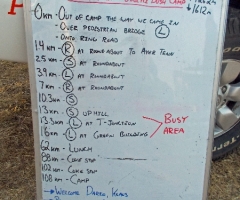 LUSH CAMP
1612m
0km - OUT OF CAMP THE WAY WE CAME IN
- OVER PEDESTRIAN BRIDGE (L)
- ONTO RING ROAD
(R) AT ROUNDABOUT TO TOWN
2.5km - (S) AT ROUNDABOUT
3.9km - (L) AT ROUNDABOUT
7km - (R) AT ROUNDABOUT
10.3km - (S)
13km - (S) UP HILL
13.3km - (L) AT T-JUNCTION
16km - (L) AT GREEN BUILDING
BUSY
AREA
62km - LUNCH
COKE STOP
102km - COKE STOP
108km - CAMP
WELCOME